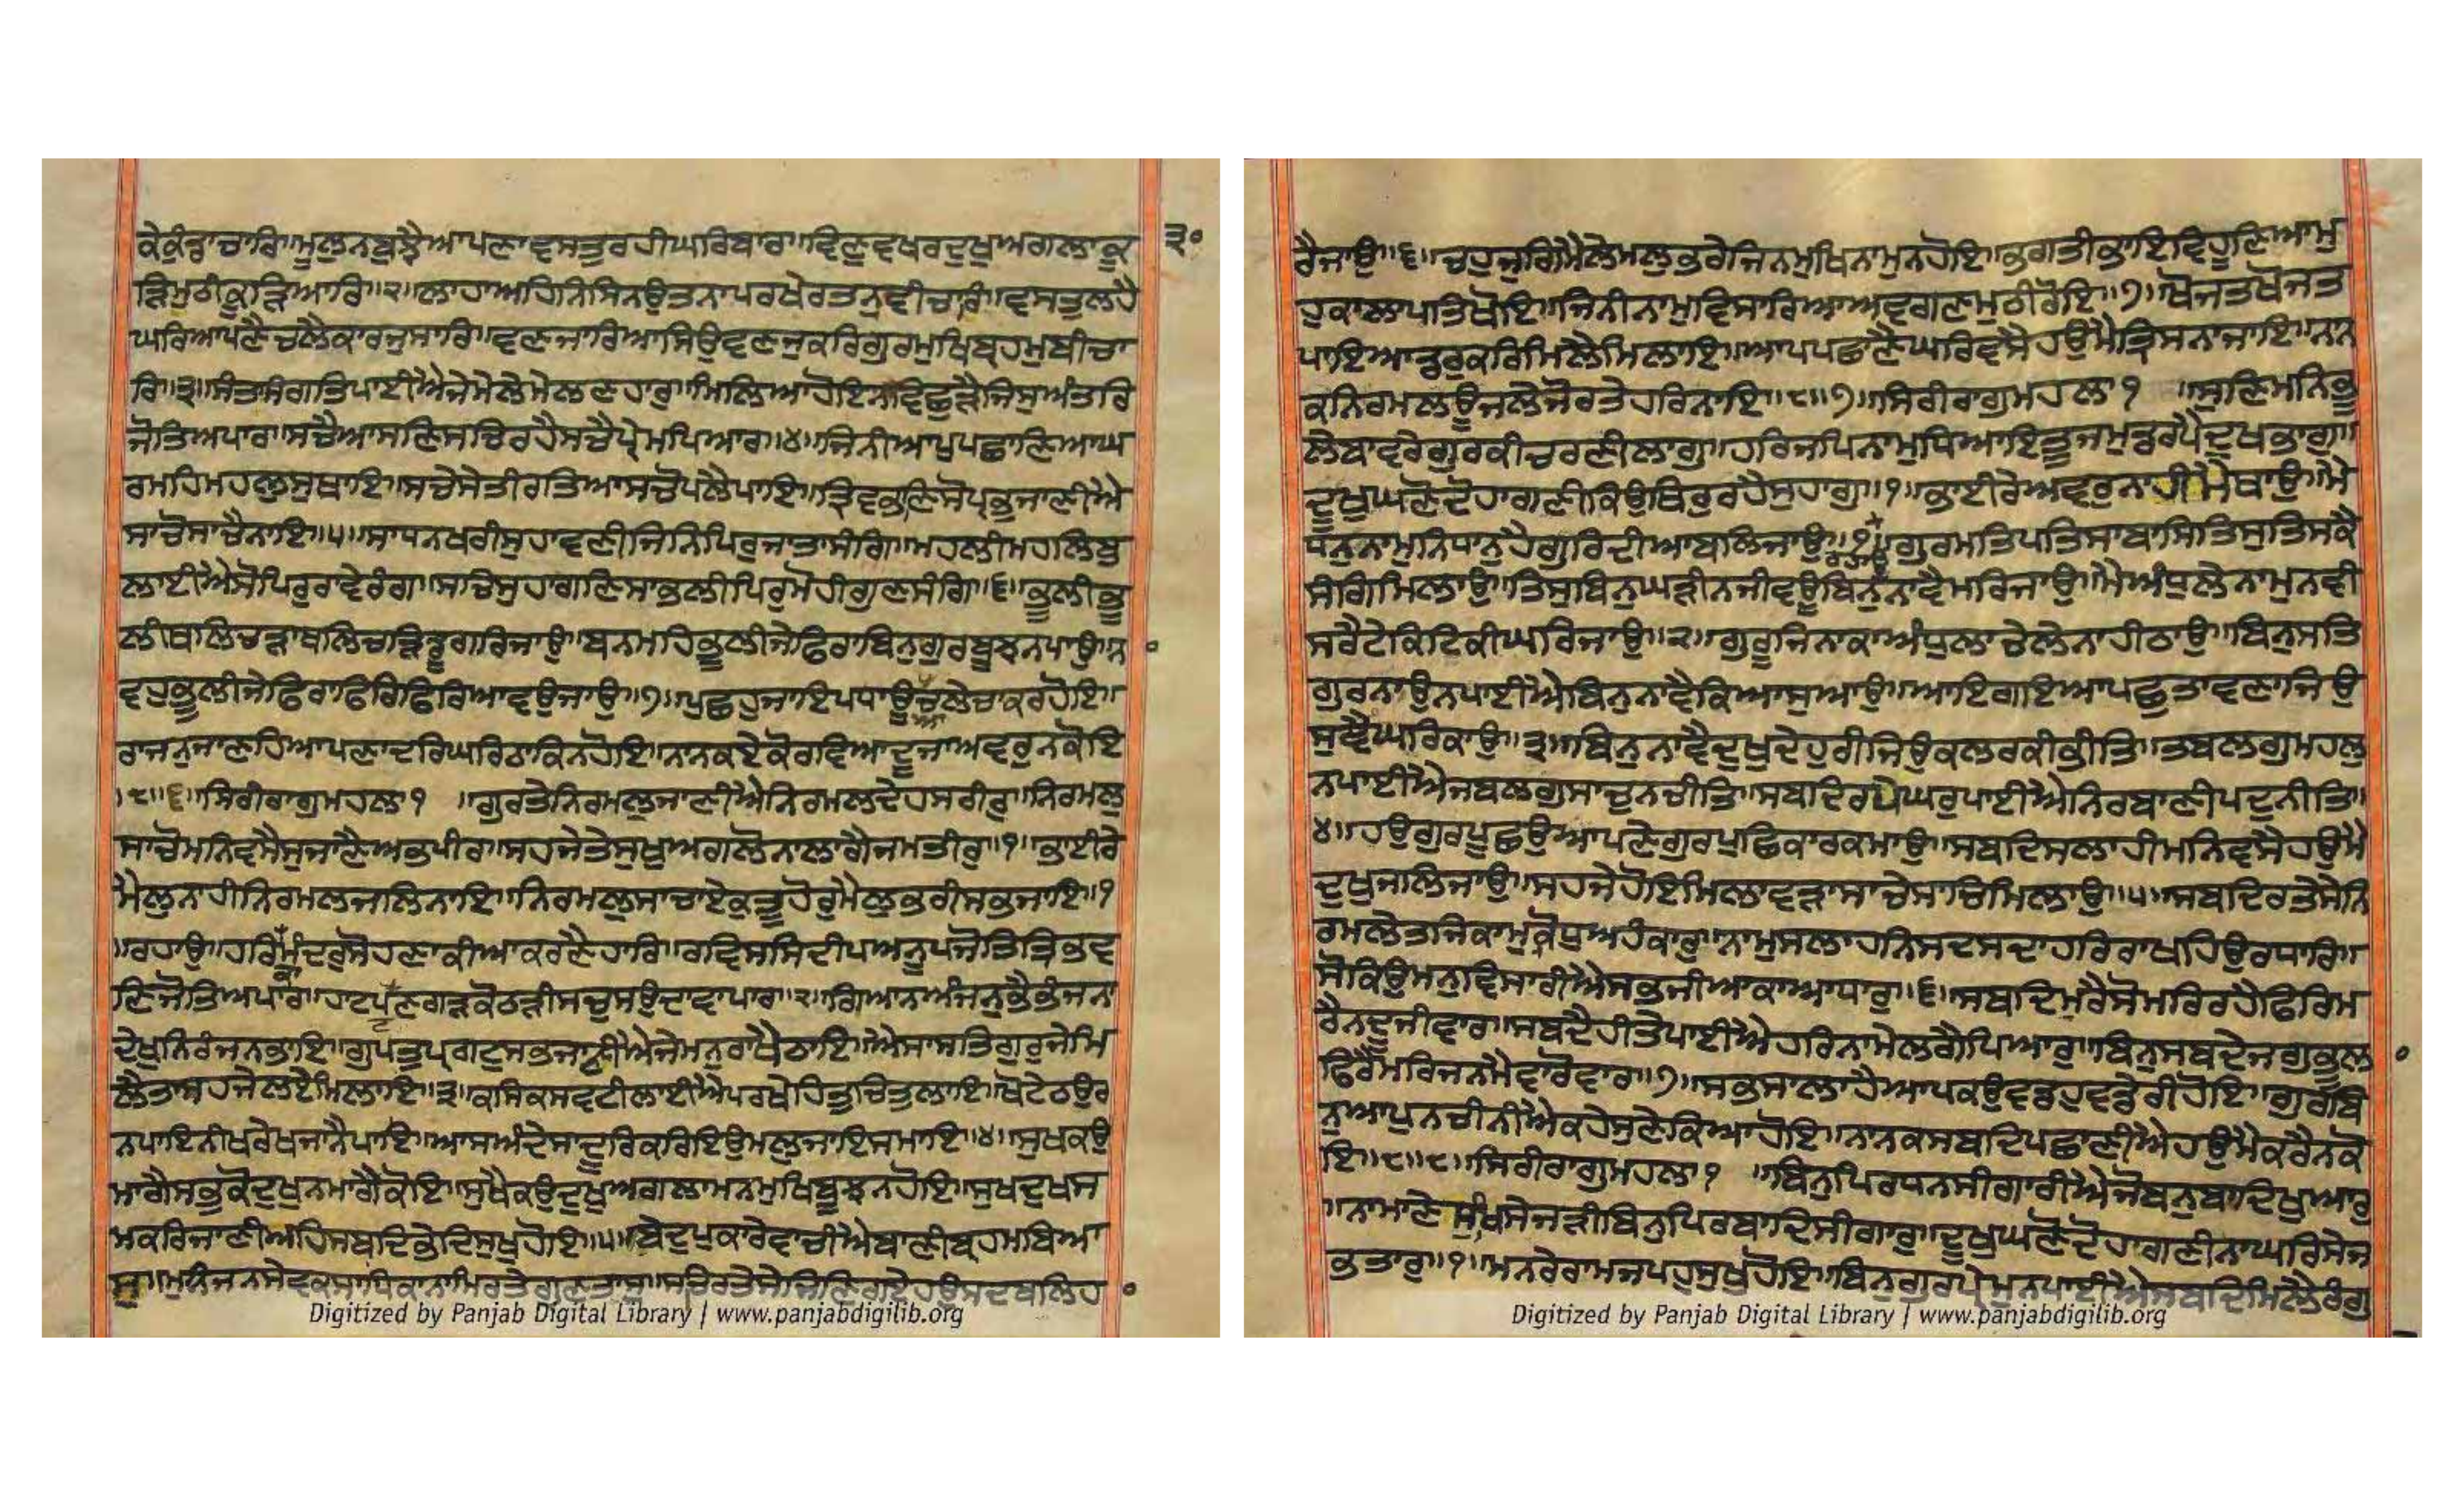 ਕੇਕੰਨ੍ਹਾਚਾਰਿ॥ਮੂਲੁਨਬੁਝੈਆਪਣਾਵਸਤੁਰਹੀਘਰਿਬਾਰਾ॥ਵਿਣੁਵਖਰਦੁਖੁਅਗਲਾਕੂ ੩੦
ੜਿਮੁਠੀਕੂੜਿਆਰਿ॥੨॥ਲਾਹਾਅਹਿਨਿਸਿਨਉਤਨਾਪਰਖੇਰਤਨੁਵੀਚਾਰਿ॥ਵਸਤੁਲਹੈ
ਘਰਿਆਪਣੈਚਲੈਕਾਰਜੁਸਾਰਿ॥ਵਣਜਾਰਿਆਸਿਉਵਣਜੁਕਰਿਗੁਰਮੁਖਿਬ੍ਰਹਮੁਬੀਚਾ
ਰਿ॥੩॥ਸੰਤਸੰਗਤਿਪਾਈਐਜੇਮੇਲੇਮੇਲਣਹਾਰੁ॥ਮਿਲਿਆਹੋਇਨਵਿਛੁੜੈਜਿਸੁਅੰਤਰਿ
ਜੋਤਿਅਪਾਰ॥ਸਚੈਆਸਣਿਸਚਿਰਹੈਸਚੈਪ੍ਰੇਮਪਿਆਰ॥੪॥ਜਿਨੀਆਪੁਪਛਾਣਿਆਘ
ਰਮਹਿਮਹਲੁਸੁਥਾਇ॥ਸਚੇਸੇਤੀਰਤਿਆਸਚੋਪਲੈਪਾਇ॥ਤ੍ਰਿਭਵਣਿਸੋਪ੍ਰਭੁਜਾਣੀਐ
ਸਾਚੋਸਾਚੈਨਾਇ॥੫॥ਸਾਧਨਖਰੀਸੁਹਾਵਣੀਜਿਨਿਪਿਰੁਜਾਤਾਸੰਗਿ॥ਮਹਲੀਮਹਲਿਬੁ
ਲਾਈਐਸੋਪਿਰੁਰਾਵੇਰੰਗਿ॥ਸਚਿਸੁਹਾਗਣਿਸਾਭਲੀਪਿਰੁਮੋਹੀਗੁਣਸੰਗਿ॥੬॥ਭੂਲੀਭੂ
ਲੀਥਲਿਚੜਾਥਲਿਚੜਿਡੂਗਰਿਜਾਉ॥ਬਨਮਹਿਭੂਲੀਜੇਫਿਰਾਬਿਨੁਗੁਰਬੂਝਨਪਾਉ॥ਨਾ
ਵਹੁਭੂਲੀਜੇਫਿਰਾਫਿਰਿਫਿਰਿਆਵਉਜਾਉ॥੭॥ਪੁਛਹੁਜਾਇਪਧਾਊਚਲੇਚਾਕਰਹੋਇ॥
ਰਾਜਨੁਜਾਣਹਿਆਪਣਾਦਰਿਘਰਿਠਾਕਿਨਹੋਇ॥ਨਾਨਕਏਕੋਰਵਿਆਦੂਜਾਅਵਰੁਨਕੋਇ
॥੮॥੬॥ਸਿਰੀਰਾਗੁਮਹਲਾ੧ ॥ਗੁਰਤੇਨਿਰਮਲੁਜਾਣੀਐਨਿਰਮਲਦੇਹਸਰੀਰੁ॥ਨਿਰਮਲੁ
ਸਾਚੋਮਨਿਵਸੈਸੁਜਾਣੈਅਭਪੀਰ॥ਸਹਜੇਤੇਸੁਖੁਅਗਲੋਨਾਲਾਗੈਜਮਤੀਰੁ॥੧॥ਭਾਈਰੇ
ਮੈਲੁਨਾਹੀਨਿਰਮਲਜਲਿਨਾਇ॥ਨਿਰਮਲੁਸਾਚਾਏਕੁਤੂਹੋਰੁਮੈਲੁਭਰੀਸਭਜਾਇ॥੧
॥ਰਹਾਉ॥ਹਰਿਕਾਮੰਦਰੁਸੋਹਣਾਕੀਆਕਰਣੈਹਾਰਿ॥ਰਵਿਸਸਿਦੀਪਅਨੂਪਜੋਤਿਤ੍ਰਿਭਵ
ਣਿਜੋਤਿਅਪਾਰ॥ਹਾਟਪਟਣਗੜਕੋਠੜੀਸਚੁਸਉਦਾਵਾਪਾਰ॥੨॥ਗਿਆਨਅੰਜਨੁਭੈਭੰਜਨਾ
ਦੇਖੁਨਿਰੰਜਨਭਾਇ॥ਗੁਪਤੁਪ੍ਰਗਟੁਸਭਜਾਣੀਐਜੇਮਨੁਰਾਖੈਠਾਇ॥ਐਸਾਸਤਿਗੁਰੁਜੇਮਿ
ਲੈਤਾਸਹਜੇਲਏਮਿਲਾਇ॥੩॥ਕਸਿਕਸਵਟੀਲਾਈਐਪਰਖੇਹਿਤੁਚਿਤੁਲਾਇ॥ਖੋਟੇਠਉਰ
ਨਪਾਇਨੀਖਰੇਖਜਾਨੈਪਾਇ॥ਆਸਅੰਦੇਸਾਦੂਰਿਕਰਿਇਉਮਲੁਜਾਇਸਮਾਇ॥੪॥ਸੁਖਕਉ
ਮਾਗੈਸਭੁਕੋਦੁਖੁਨਮਾਗੈਕੋਇ॥ਸੁਖੈਕਉਦੁਖੁਅਗਲਾਮਨਮੁਖਿਬੂਝਨਹੋਇ॥ਸੁਖਦੁਖਸ
ਮਕਰਿਜਾਣੀਅਹਿਸਬਦਿਭੇਦਿਸੁਖੁਹੋਇ॥੫॥ਬੇਦੁਪੁਕਾਰੇਵਾਚੀਐਬਾਣੀਬ੍ਰਹਮਬਿਆ
ਸੁ॥ਮੁਨਿਜਨਸੇਵਕਸਾਧਿਕਾਨਾਮਿਰਤੇਗੁਣਤਾਸੁ॥ਸਚਿਰਤੇਸੇਜਿਣਿਗਏਹਉਸਦਬਲਿਹਾ
Digitized by Panjab Digital Library | www.panjabdigilib.org
ਰੈਜਾਉ॥੬॥ਚਹੁਜੁਗਿਮੈਲੇਮਲੁਭਰੇਜਿਨਮੁਖਿਨਾਮੁਨਹੋਇ॥ਭਗਤੀਭਾਇਵਿਹੂਣਿਆਮੁ
ਹੁਕਾਲਾਪਤਿਖੋਇ॥ਜਿਨੀਨਾਮੁਵਿਸਾਰਿਆਅਵਗਣਮੁਠੀਰੋਇ॥੭॥ਖੋਜਤਖੋਜਤ
ਪਾਇਆਡਰੁਕਰਿਮਿਲੈਮਿਲਾਇ॥ਆਪਪਛਾਣੈਘਰਿਵਸੈਹਉਮੈਤ੍ਰਿਸਨਾਜਾਇ॥ਨਾਨ
ਕਨਿਰਮਲਊਜਲੇਜੋਰਤੇਹਰਿਨਾਇ॥੮॥੭॥ਸਿਰੀਰਾਗੁਮਹਲਾ੧ ॥ਸੁਣਿਮਨਿਭੂ
ਲੇਬਾਵਰੇਗੁਰਕੀਚਰਣੀਲਾਗੁ॥ਹਰਿਜਪਿਨਾਮੁਧਿਆਇਤੂਜਮੁਡਰਪੈਦੁਖਭਾਗੁ॥
ਦੂਖੁਘਣੋਦੋਹਾਗਣੀਕਿਉਥਿਰੁਰਹੈਸੁਹਾਗੁ॥੧॥ਭਾਈਰੇਅਵਰੁਨਾਹੀਮੈਥਾਉ॥ਮੈ
ਧਨੁਨਾਮੁਨਿਧਾਨੁਹੈਗੁਰਿਦੀਆਬਲਿਜਾਉ॥੧॥ਰਹਾਉ॥ਗੁਰਮਤਿਪਤਿਸਾਬਾਸਿਤਿਸੁਤਿਸਕੈ
ਸੰਗਿਮਿਲਾਉ॥ਤਿਸੁਬਿਨੁਘੜੀਨਜੀਵਊਬਿਨੁਨਾਵੈਮਰਿਜਾਉ॥ਮੈਅੰਧੁਲੇਨਾਮੁਨਵੀ
ਸਰੈਟੇਕਟਿਕੀਘਰਿਜਾਉ॥੨॥ਗੁਰੂਜਿਨਾਕਾਅੰਧੁਲਾਚੇਲੇਨਾਹੀਠਾਉ॥ਬਿਨੁਸਤਿ
ਗੁਰਨਾਉਨਪਾਈਐਬਿਨੁਨਾਵੈਕਿਆਸੁਆਉ॥ਆਇਗਇਆਪਛੁਤਾਵਣਾਜਿਉ
ਸੁੰਞੈਘਰਿਕਾਉ॥੩॥ਬਿਨੁਨਾਵੈਦੁਖੁਦੇਹੁਰੀਜਿਉਕਲਰਕੀਭੀਤਿ॥ਤਬਲਗੁਮਹਲੁ
ਨਪਾਈਐਜਬਲਗੁਸਾਚੁਨਚੀਤਿ॥ਸਬਦਿਰਪੈਘਰੁਪਾਈਐਨਿਰਬਾਣੀਪਦੁਨੀਤਿ॥
੪॥ਹਉਗੁਰਪੂਛਉਆਪਣੇਗੁਰਪੁਛਿਕਾਰਕਮਾਉ॥ਸਬਦਿਸਲਾਹੀਮਨਿਵਸੈਹਉਮੈ
ਦੁਖੁਜਲਿਜਾਉ॥ਸਹਜੇਹੋਇਮਿਲਾਵੜਾਸਾਚੇਸਾਚਿਮਿਲਾਉ॥੫॥ਸਬਦਿਰਤੇਸੇਨਿ
ਰਮਲੇਤਜਿਕਾਮੁਕ੍ਰੋਧੁਅਹੰਕਾਰੁ॥ਨਾਮੁਸਲਾਹਨਿਸਦਸਦਾਹਰਿਰਾਖਹਿਉਰਧਾਰਿ॥
ਸੋਕਿਉਮਨੁਵਿਸਾਰੀਐਸਭਜੀਆਕਾਆਧਾਰੁ॥੬॥ਸਬਦਿਮਰੈਸੋਮਰਿਰਹੈਫਿਰਿਮ
ਰੈਨਦੂਜੀਵਾਰ॥ਸਬਦੈਹੀਤੇਪਾਈਐਹਰਿਨਾਮੇਲਗੈਪਿਆਰੁ॥ਬਿਨੁਸਬਦੇਜਗੁਭੂਲਾ
ਫਿਰੈਮਰਿਜਨਮੈਵਾਰੋਵਾਰ॥੭॥ਸਭਸਾਲਾਹੈਆਪਕਉਵਡਹੁਵਡੇਰੀਹੋਇ॥ਗੁਰਬਿ
ਨੁਆਪੁਨਚੀਨੀਐਕਹੇਸੁਣੇਕਿਆਹੋਇ॥ਨਾਨਕਸਬਦਿਪਛਾਣੀਐਹਉਮੈਕਰੈਨਕੋ
ਇ॥੮॥੮॥ਸਿਰੀਰਾਗੁਮਹਲਾ੧ ॥ਬਿਨੁਪਿਰਧਨਸੀਗਾਰੀਐਜੋਬਨੁਬਾਦਿਖੁਆਰੁ
॥ਨਾਮਾਣੇਸੁਖਿਸੇਜੜੀਬਿਨੁਪਿਰਬਾਦਿਸੀਗਾਰੁ॥ਦੂਖੁਘਣੋਦੋਹਾਗਣੀਨਾਘਰਿਸੇਜ
ਭਤਾਰੁ॥੧॥ਮਨਰੇਰਾਮਜਪਹੁਸੁਖੁਹੋਇ॥ਬਿਨੁਗੁਰਪ੍ਰੇਮੁਨਪਾਈਐਸਬਦਿਮਿਲੈਰੰਗੁ
Digitized by Panjab Digital Library | www.panjabdigilib.org